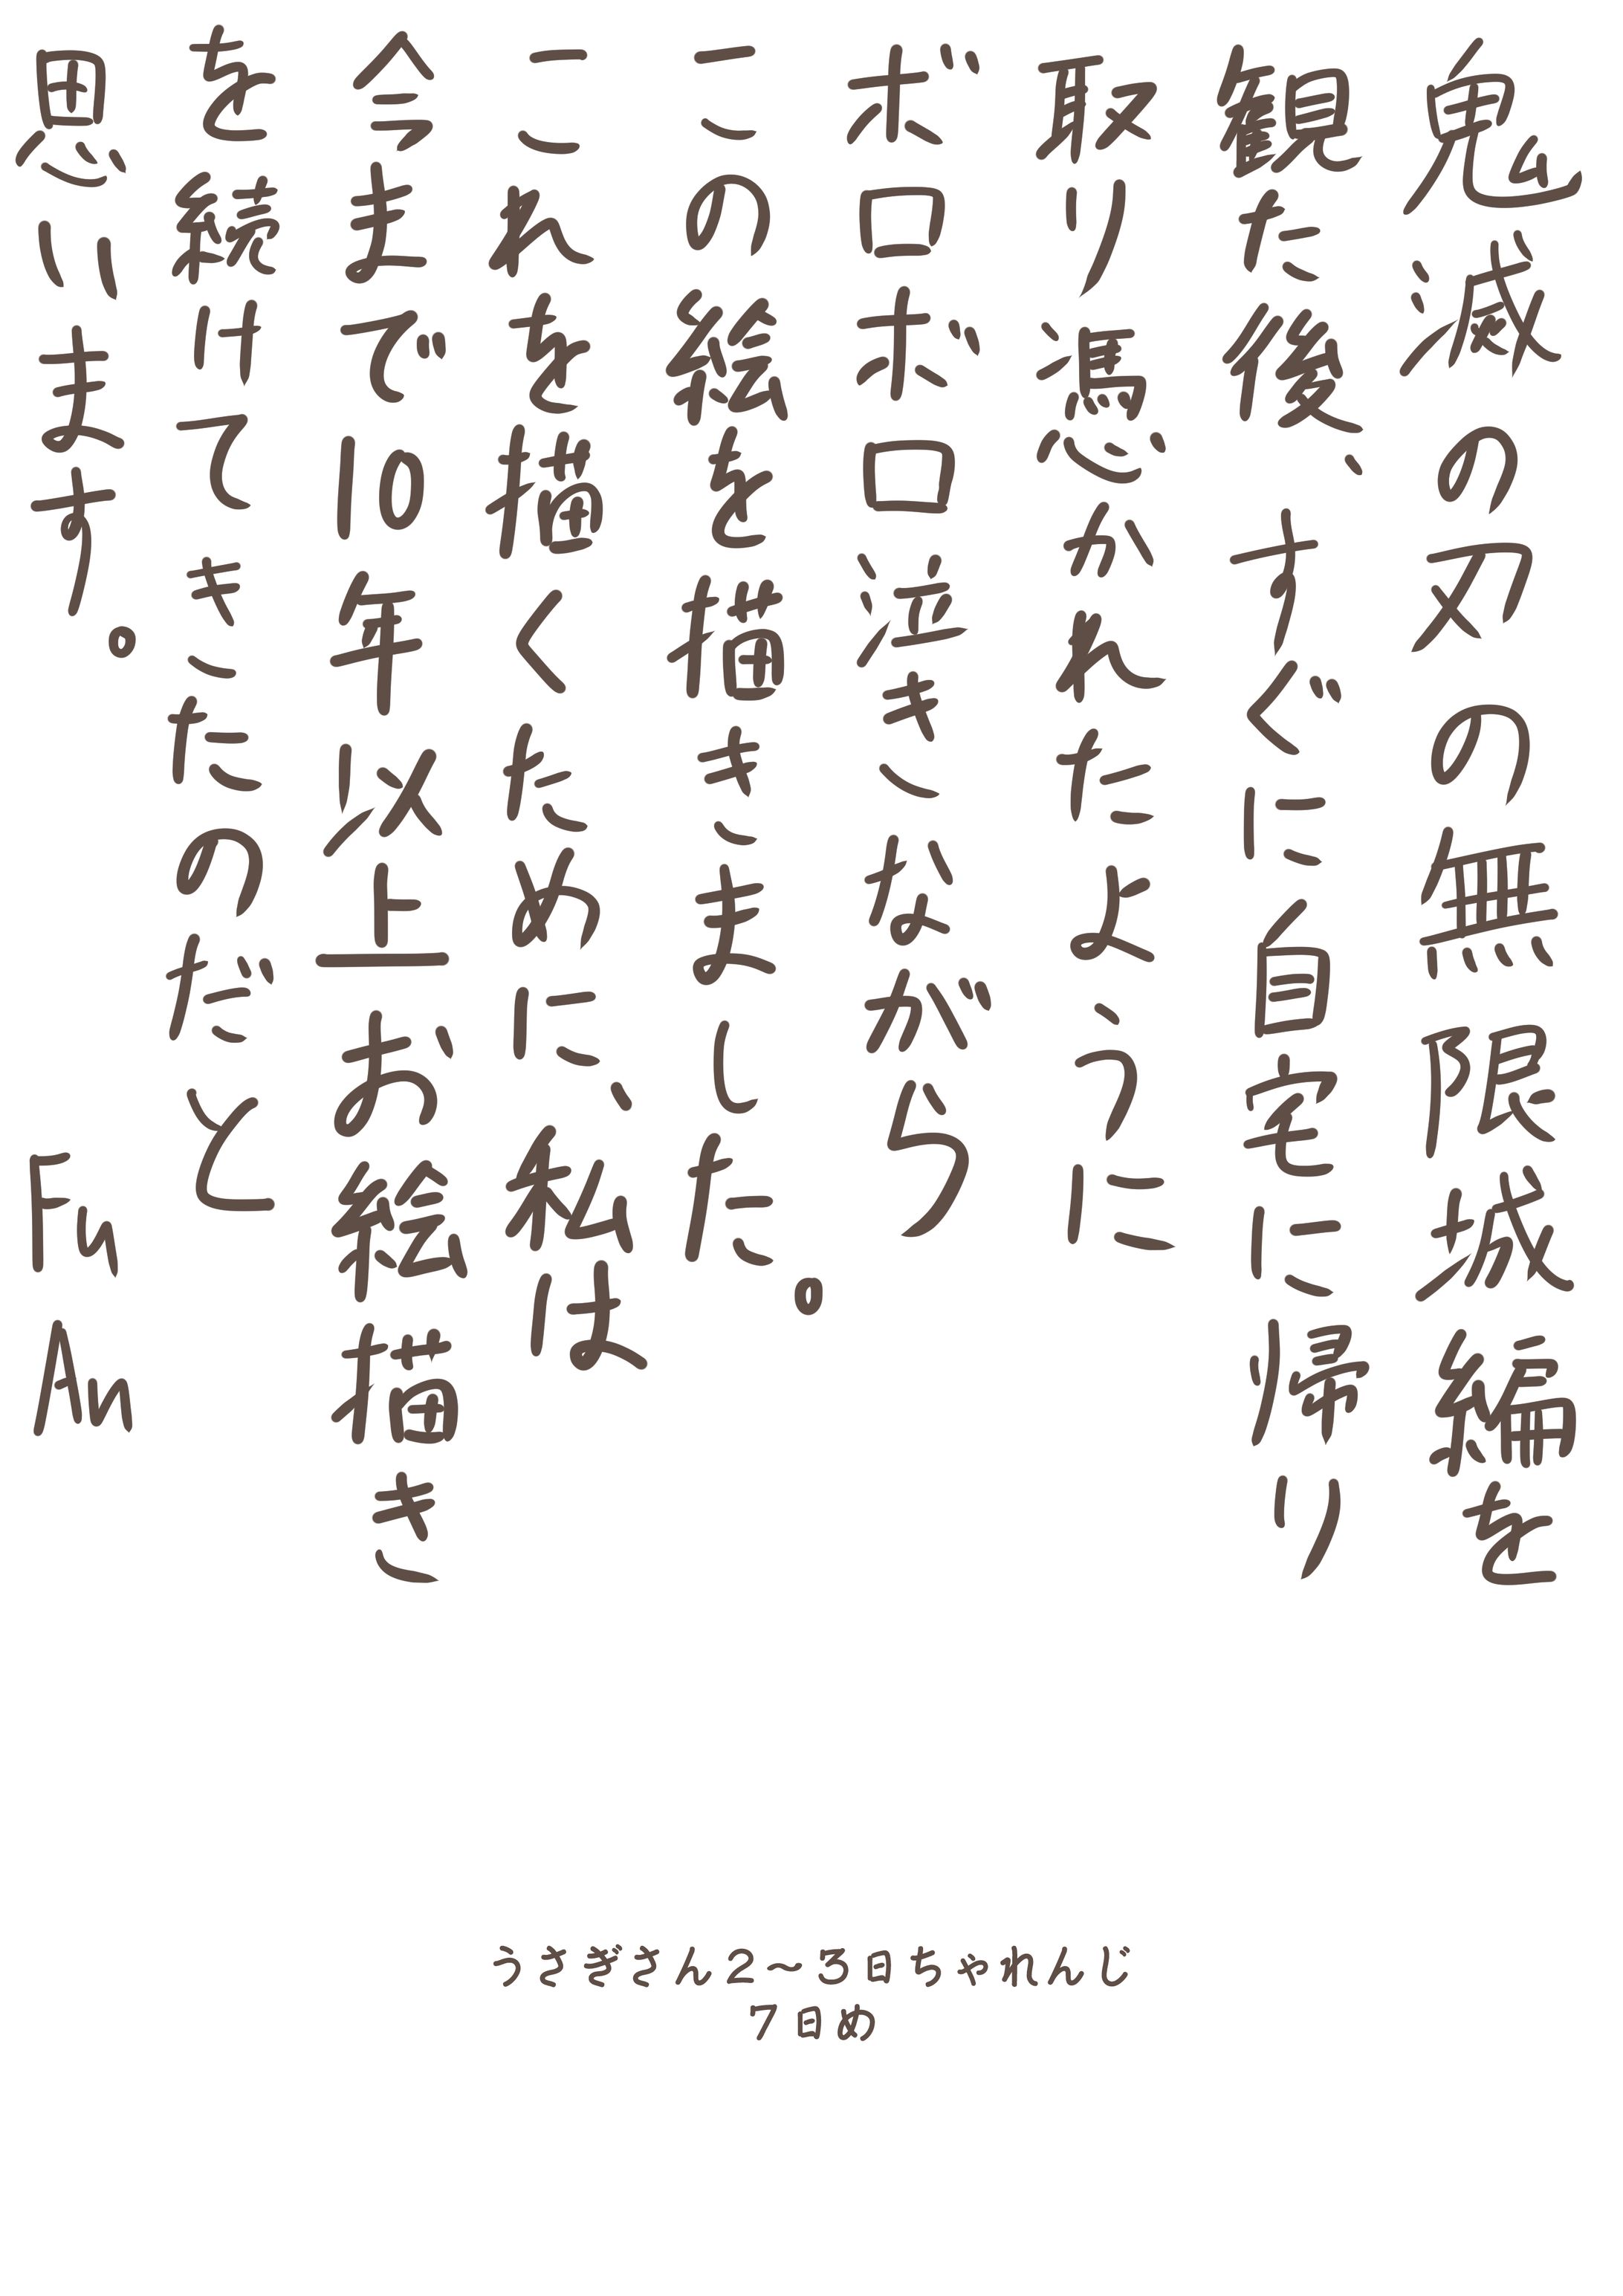 鬼滅の刃の無限城編を
観た後、すぐに自宅に帰り
取り憑かれたように
ボロボロ泣きながら
この絵を描きました。
これを描くために、私は
今まで10年以上お絵描き
を続けてきたのだと
思います。
Fu Au
うさぎさん2〜3日ちゃれんじ
7日め